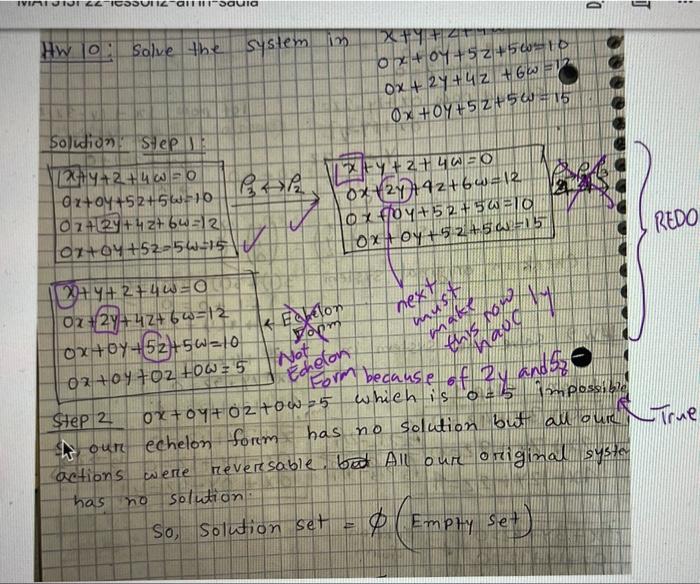 HW 10: Solve the system in
x+y+z+4w
0x+0y+5z+5w=10
0x+2y+4z+6w=12
0x+0y+5z+5w=15
Solution: Step 1:
x+y+z+4w=0
0x+0y+5z+5w=10
0x+2y+4z+6w=12
0x+0y+5z=5w=15
P3↔P2
x+y+z+4w=0
0x+2y+4z+6w=12
0x+0y+5z+5w=10
0x+0y+5z+5w=15
REDO
next
must
make
this row
have 1y
x+y+z+4w=0
0x+2y+4z+6w=12
0x+0y+5z+5w=10
0x+0y+0z+0w=5
Echelon
Form
Not
Echelon
Form because of 2y and 5z
Step 2 0x+0y+0z+0w=5 which is 0=5 impossible
True
So our echelon form has no solution but all our
actions were reversable. but All our original syste
has no solution.
So, Solution set = φ (Empty set)